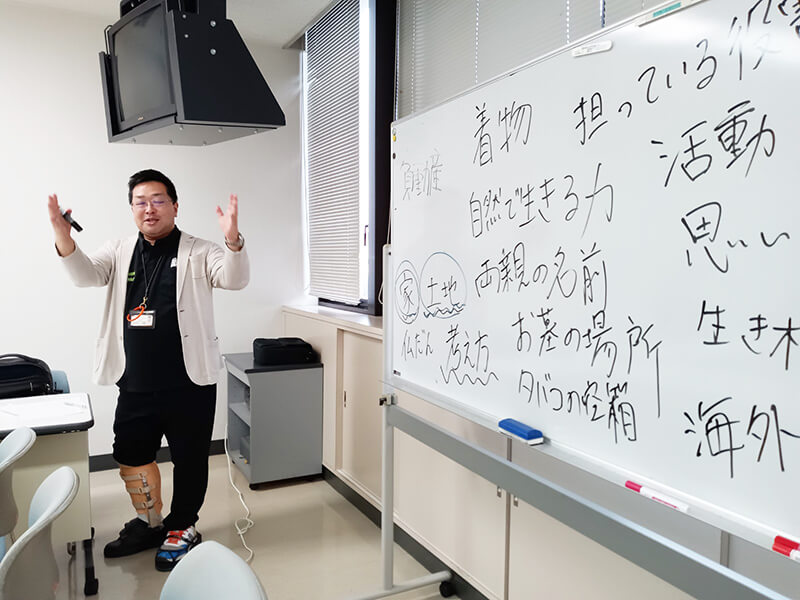 着物
担っている役
負動産
活動
自然で生きる力
思い
家
土地
両親の名前
仏だん
考え方
お墓の場所
生き
タバコの空箱
海外